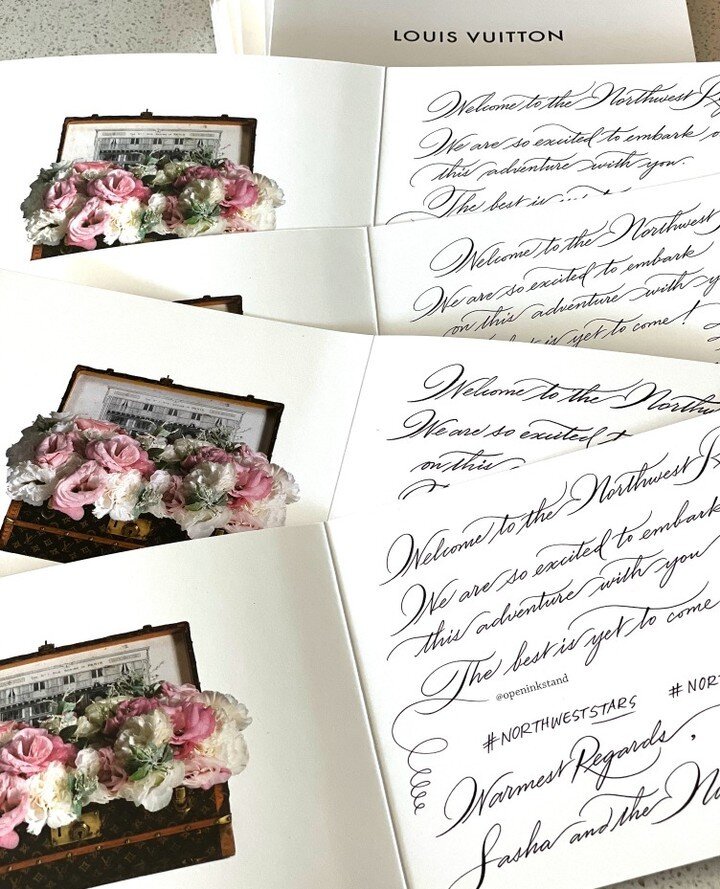 LOUIS VUITTON
Welcome to the Northwest R
We are so excited to embark o
this adventure with you.
The best is
Welcome to the Northwest
We are so excited to embark
on this adventure with y
is yet to come!
Welcome to the Northw
We are so excited t
on this
Welcome to the Northwest R
We are so excited to embark
this adventure with you
The best is yet to come
@openinkstand
#NORTHWESTSTARS #NOR
Warmest Regards,
Sasha and the No